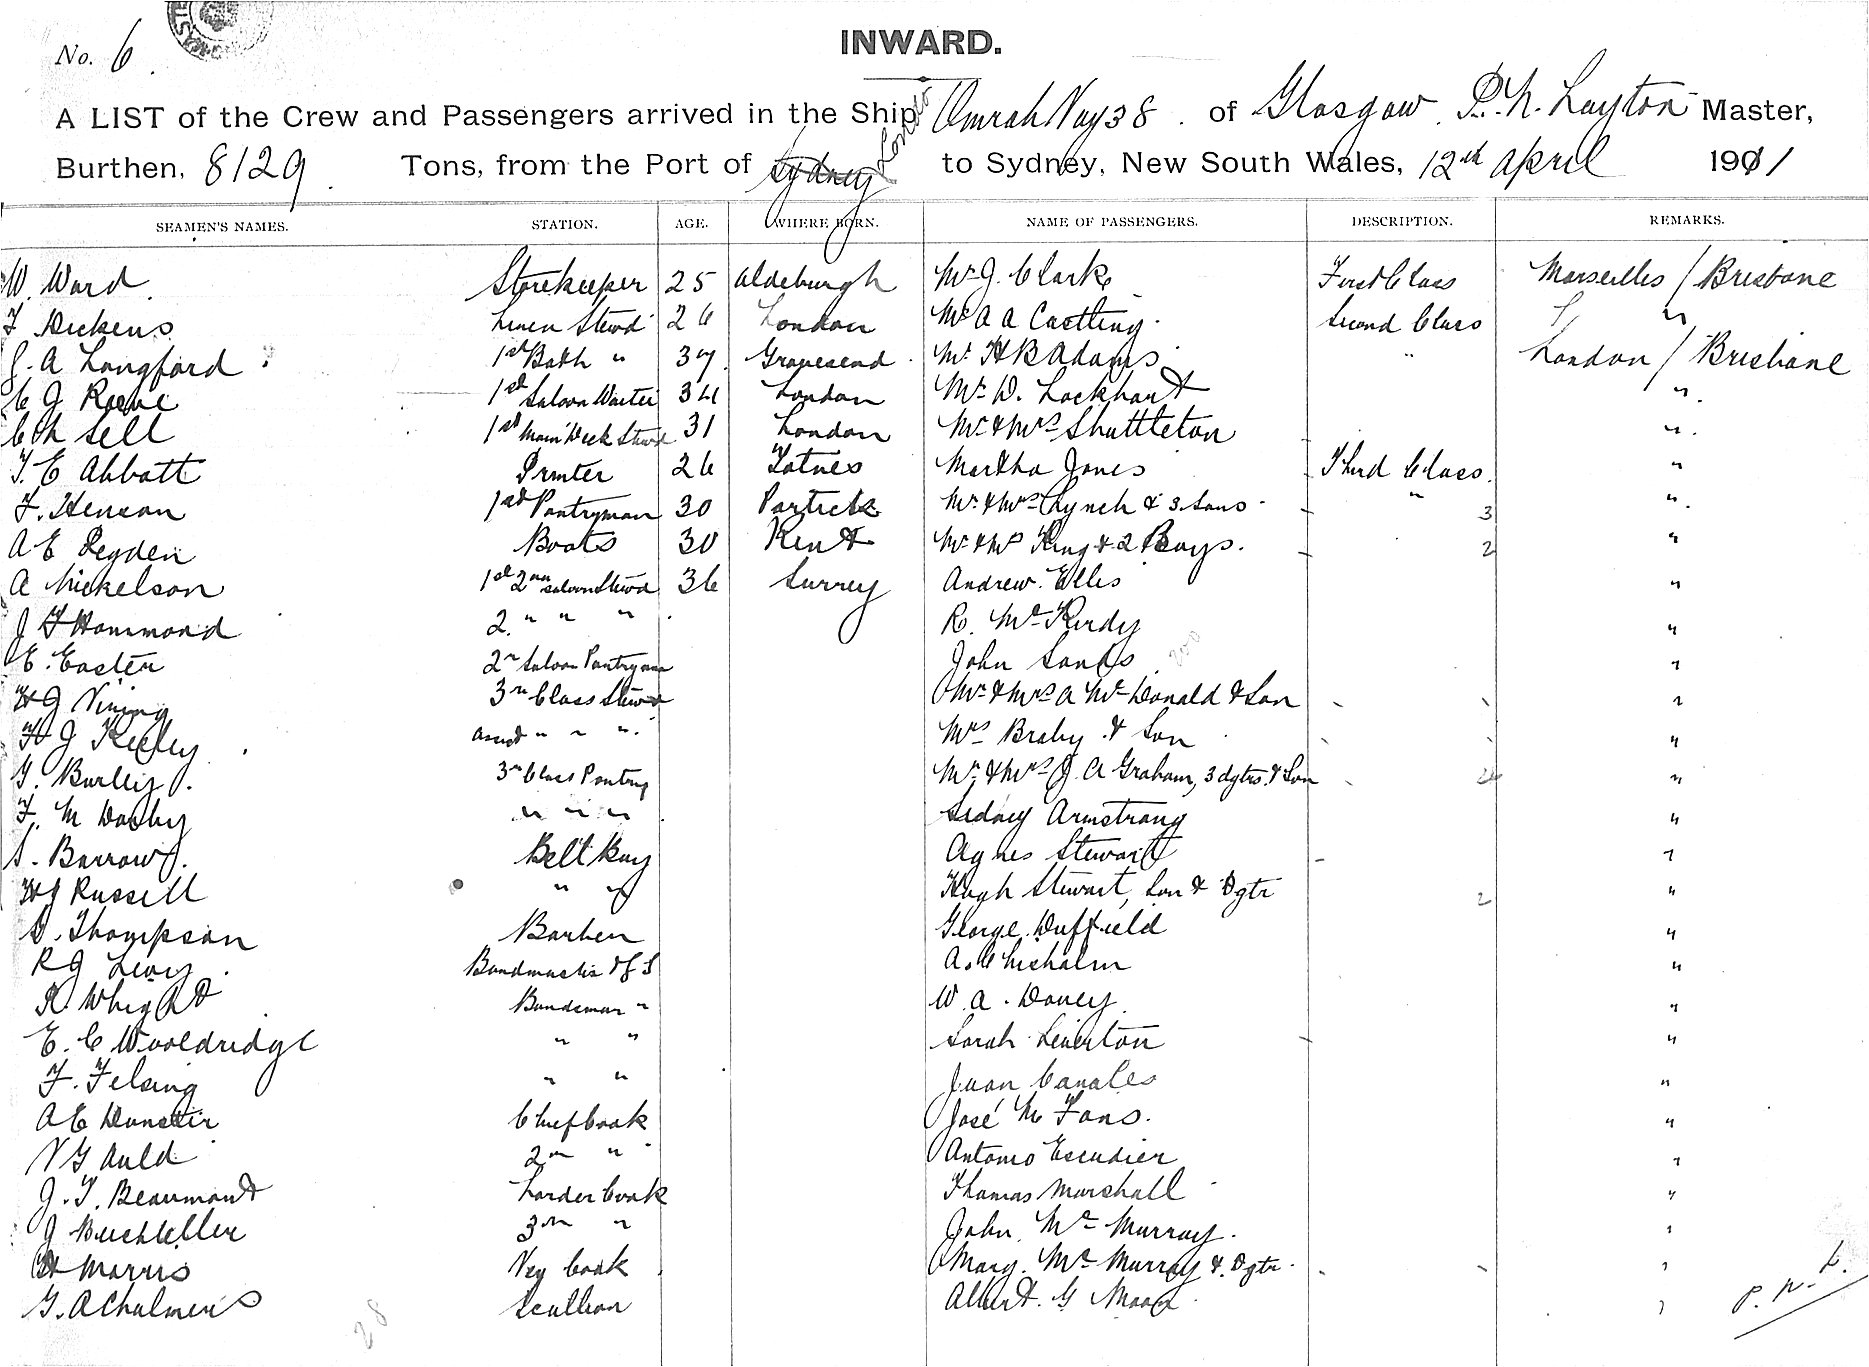 No. 6
INWARD.
A LIST of the Crew and Passengers arrived in the Ship Omrah Voy 38 of Glasgow P. N. Layton Master,
Burthen, 8129 Tons, from the Port of Sydney London to Sydney, New South Wales, 12th April 1911
SEAMEN'S NAMES. STATION. AGE. WHERE BORN. NAME OF PASSENGERS. DESCRIPTION. REMARKS.
W. Ward Storekeeper 25 Aldeburgh Mr J. Clarke First Class Marseilles / Brisbane
F Dickens Linen Stewd 26 London Mr A A Castling Second Class " "
J. A Longford 1st Bath " 37 Gravesend Mr H B Adams " London / Brisbane
C J Reeve 1st Saloon Waiter 34 London Mr D. Lockhart "
C H Sell 1st Main Deck Stewd 31 London Mr & Mrs Shuttleton "
T. E Abbott Printer 26 Totnes Martha Jones Third Class "
F. Henson 1st Pantryman 30 Partick Mr & Mrs Lynch & 3 Sons " 3 "
A E Pegden Boots 30 Kent Mr & Mrs King & 2 Boys. 2 "
A Mickelson 1st 2nd Saloon Stewd 36 Surrey Andrew Ellis "
J F Hammond 2. " " " R. McKurdy "
E. Easter 2nd Saloon Pantryman John Sands "
H J Vining 3rd Class Stewd Mr & Mrs A McDonald & Son "
H J Keeley Assist " " " Mrs Braby & Son "
G. Burley 3rd Class Pantry Mr & Mrs J. A Graham, 3 dgtrs & Son "
F. M Darby " " " Sidney Armstrong "
S. Barrow Bell Boy Agnes Stewart "
H J Russell " " Hugh Stewart, Son & Dgtr 2 "
D. Thompson Barber George Duffield "
R J Levy Bandmaster A. Chisholm "
R. Whight Bandsman " W A. Doney "
E. C Wooldridge " " Sarah Leverton "
F. Felsing " " Juan Canales "
A E Dunster Chief Cook José M Fons. "
V G Auld 2nd " Antonio Escudier "
J. T. Beaumont Larder Cook Thomas Marshall "
J 3rd " John McMurray. "
H Morris Veg Cook Mary McMurray & Dgtr. "
G. A Chalmers Scullion Albert G "
28
P. N. L.